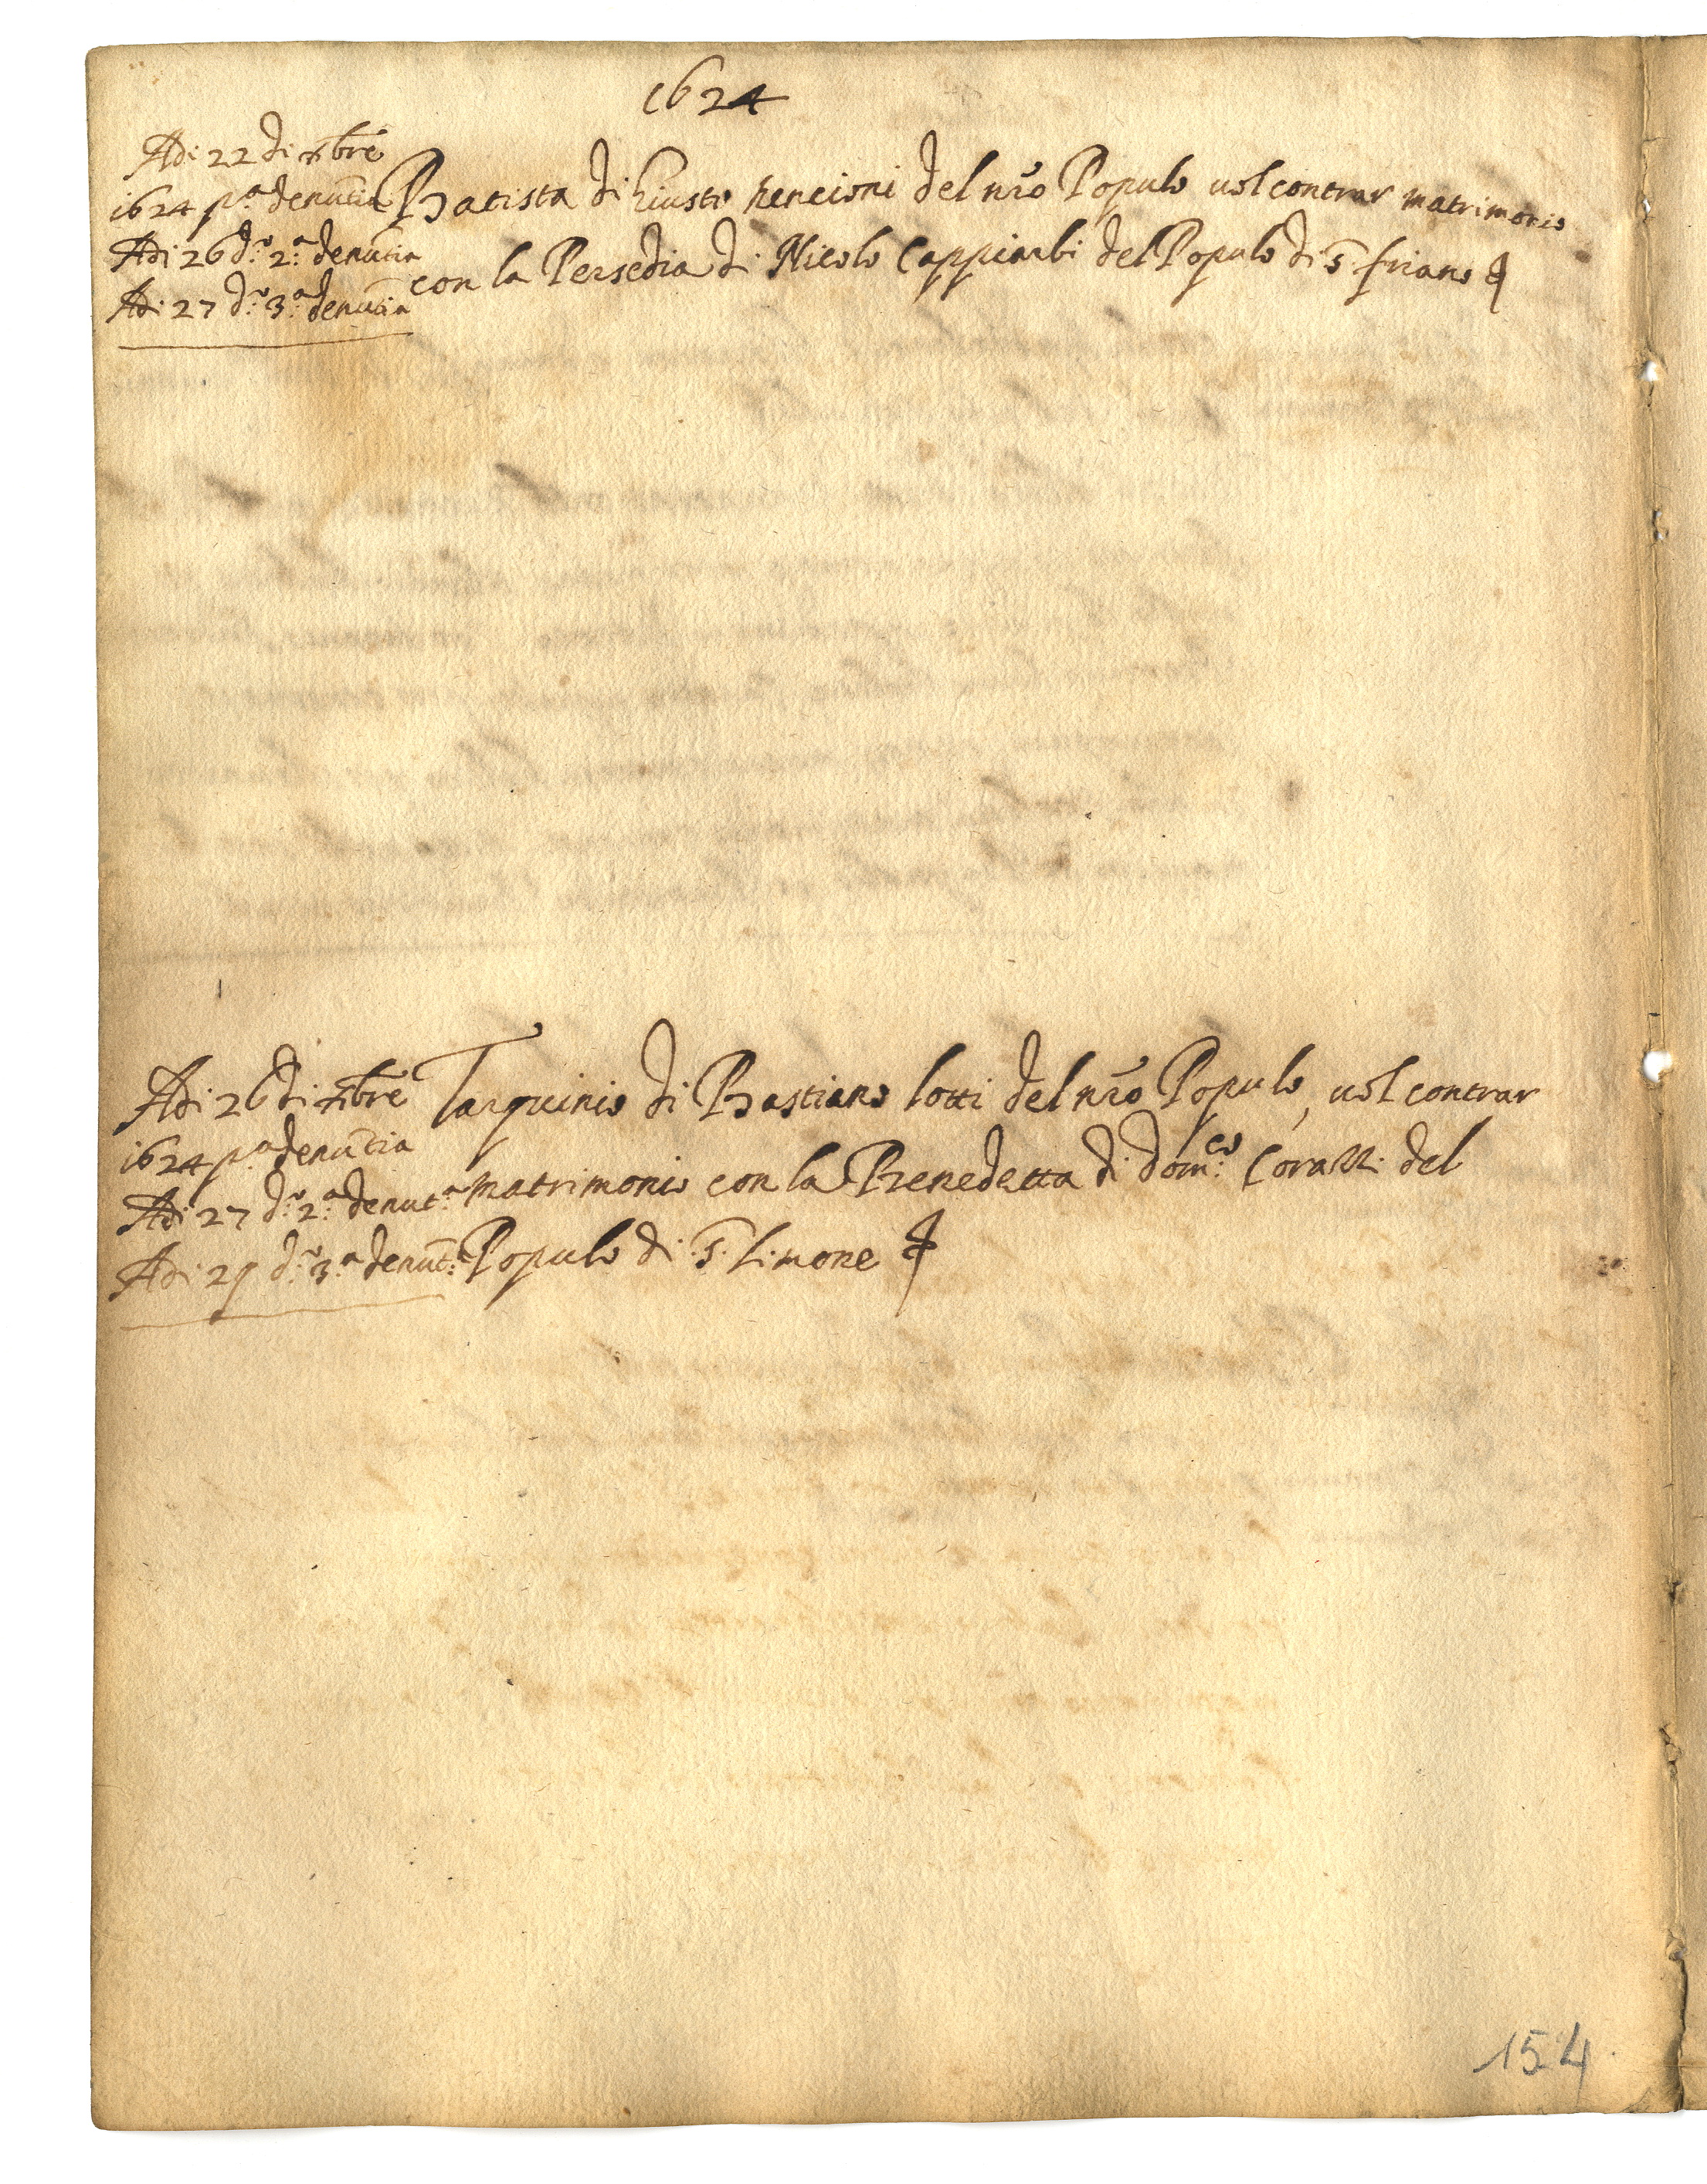 1624
Adi 22 di xbre
1624 p.a denūtia
Adi 26 d.o 2.a denūtia
Adi 27 d.o 3.a denūtia
Batista di Giusto nencioni del nr̃o Populo vol contrar matrimonio
con la Persedia di Nicolo Cappiarbi del Populo di S friano
Adi 26 di xbre
1624 p.a denūtia
Adi 27 d.o 2.a denut.a
Adi 29 d.o 3.a denūt.a
Tarquinio di Bastiano lotti del nr̃o Populo, vol contrar
matrimonio con la Benedetta di Dom.co Coralli del
Populo di S. Simone
154